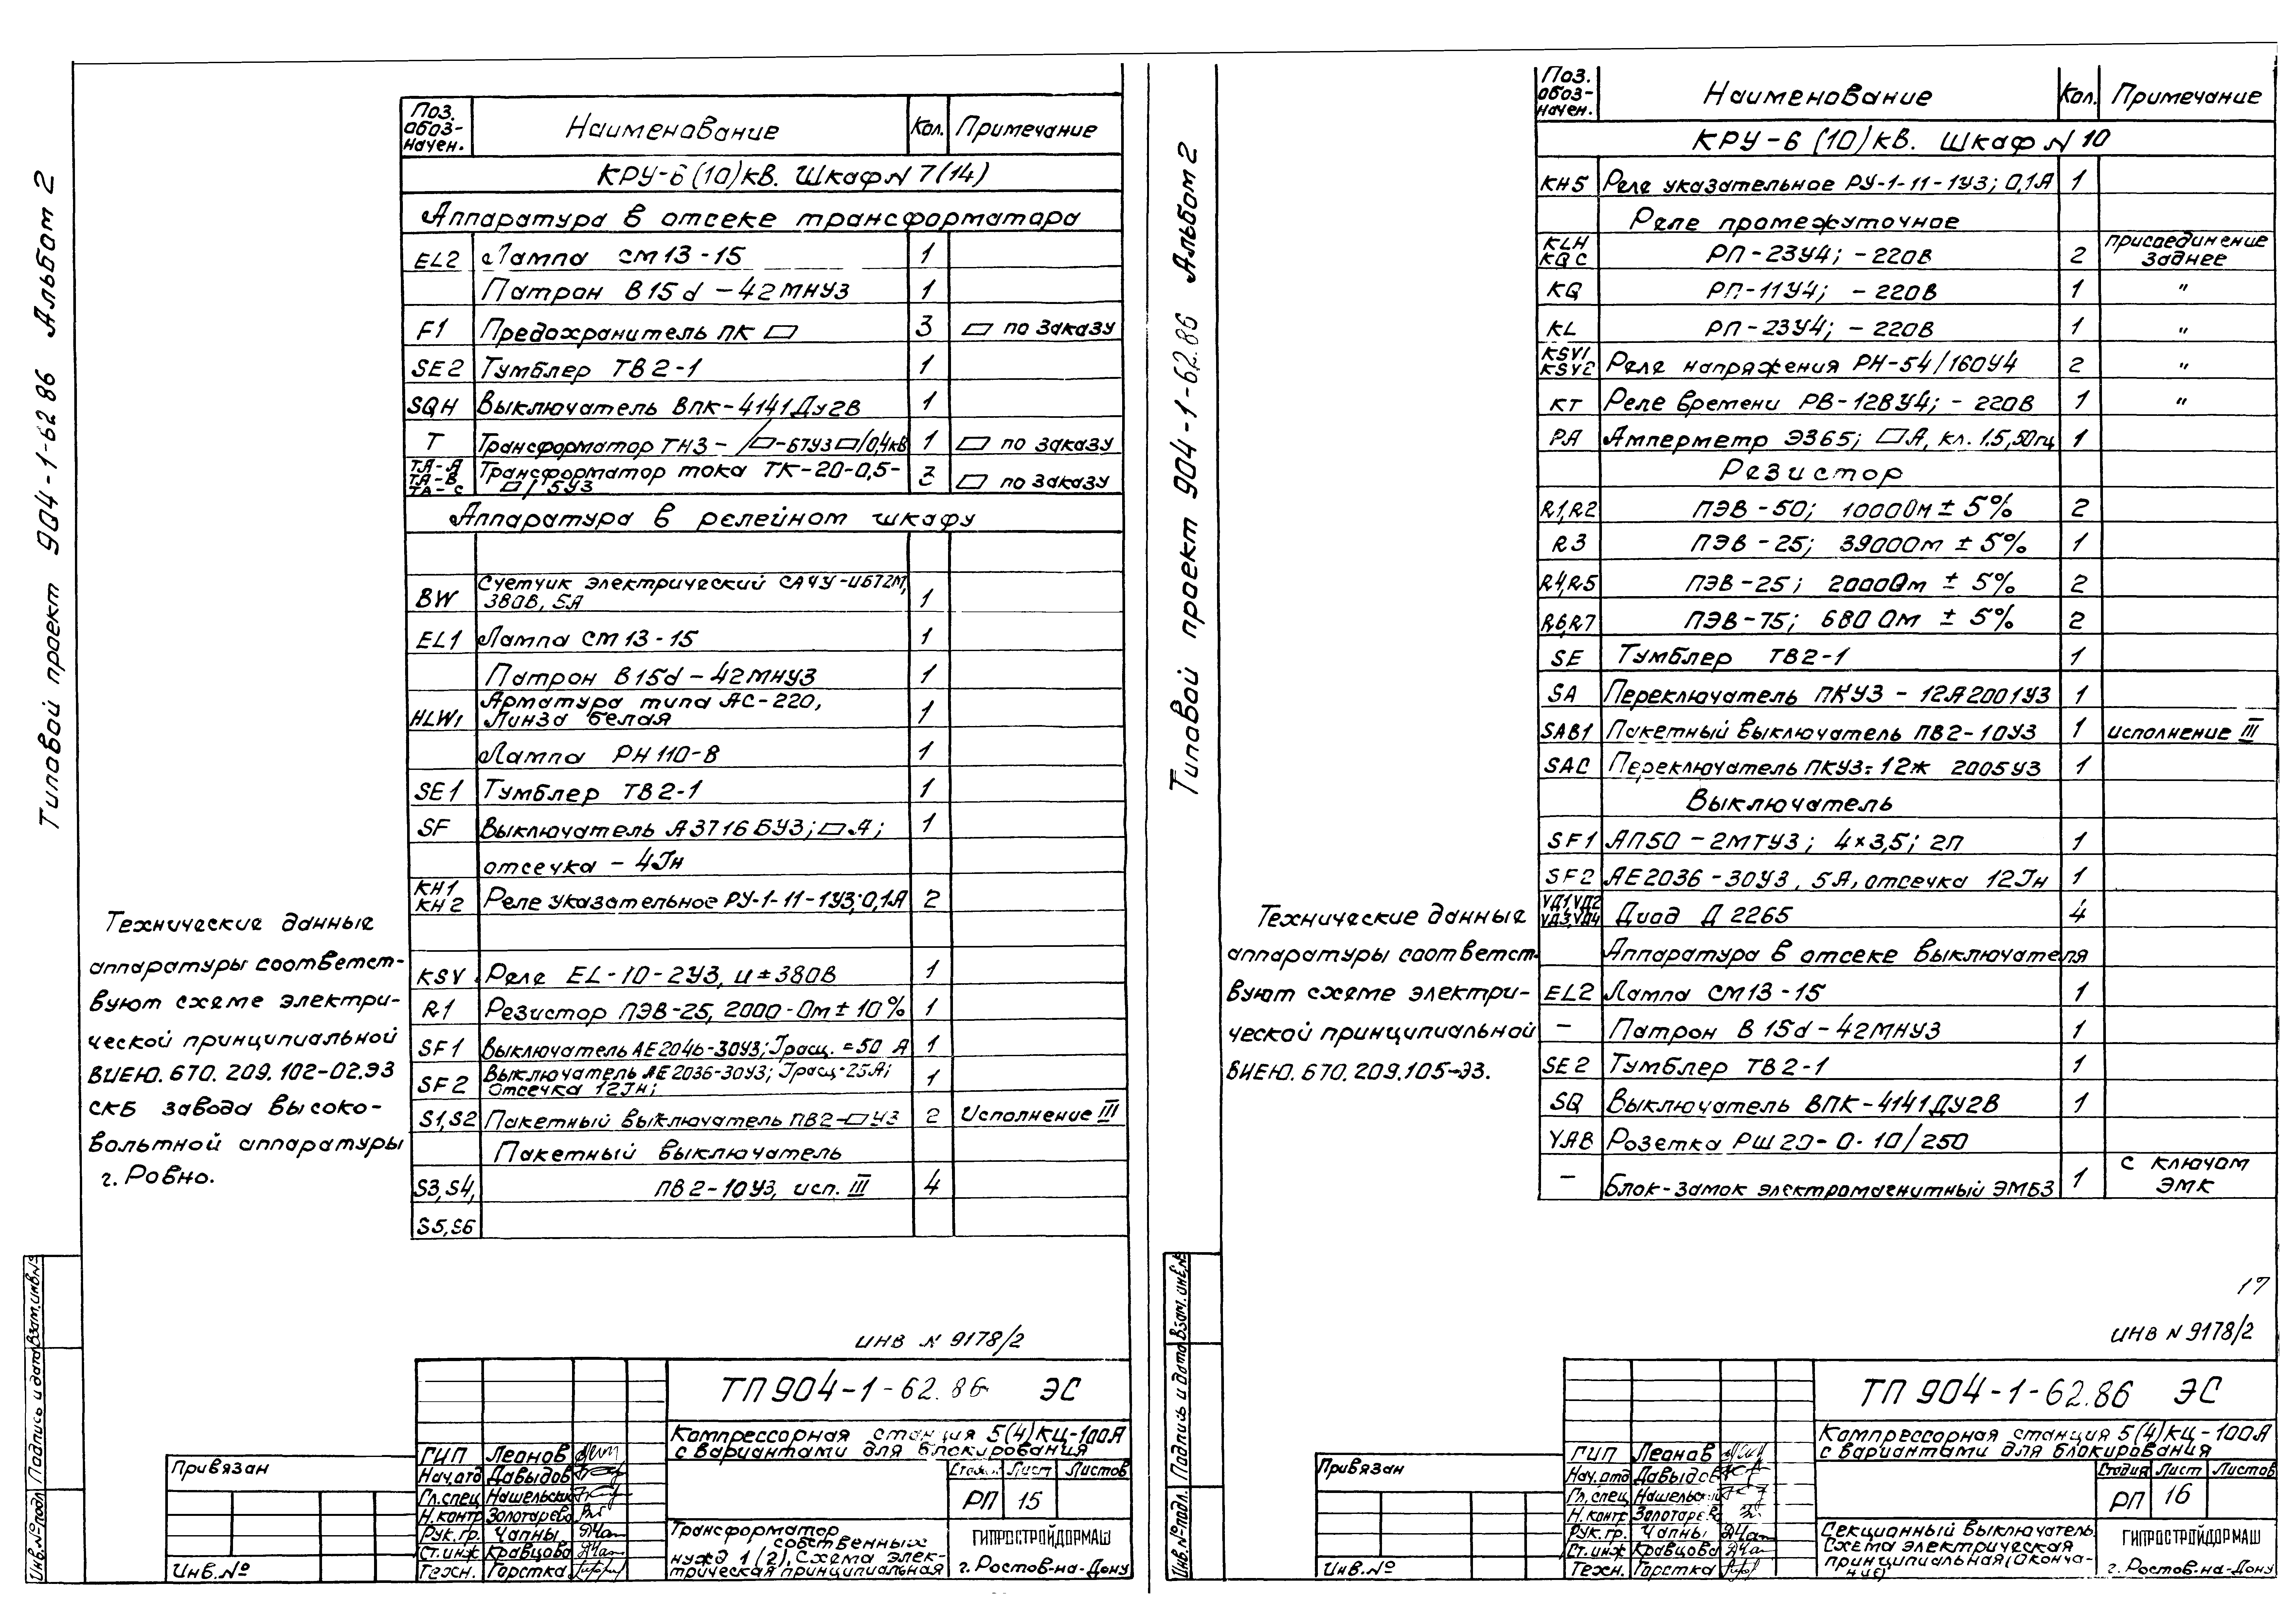 Типовой проект 904-1-62 86 Альбом 2
Поз. обоз-начен. Наименование Кол. Примечание
КРУ-6 (10) кв. Шкаф N 7 (14)
Аппаратура в отсеке трансформатора
EL2 Лампа СМ13-15 1
Патрон В15d-42МНУ3 1
F1 Предохранитель ПК ▱ 3 ▱ по заказу
SE2 Тумблер ТВ2-1 1
SQH Выключатель ВПК-4141ДУ2В 1
T Трансформатор ТНЗ- /▱-67У3 ▱/0,4кв 1 ▱ по заказу
TA-A TA-B TA-C Трансформатор тока ТК-20-0,5-
▱/5У3 3 ▱ по заказу
Аппаратура в релейном шкафу
BW Счетчик электрический СА4У-И672М,
380В, 5А 1
EL1 Лампа СМ13-15 1
Патрон В15d-42МНУ3 1
HLW1 Арматура типа АС-220,
Линза белая 1
Лампа РН110-8 1
SE1 Тумблер ТВ2-1 1
SF Выключатель А3716БУ3; ▱ А; 1
отсечка - 4Iн
KH1 KH2 Реле указательное РУ-1-11-1У3; 0,1А 2
KSV Реле EL-10-2У3, U=380В 1
R1 Резистор ПЭВ-25, 2000-Ом ± 10% 1
SF1 Выключатель АЕ2046-30У3; Iрасц. = 50 А 1
SF2 Выключатель АЕ2036-30У3; Iрасц-25А;
Отсечка 12Iн; 1
S1,S2 Пакетный выключатель ПВ2-▱У3 2 Исполнение III
Пакетный выключатель
S3,S4, ПВ2-10У3, исп. III 4
S5,S6
Технические данные
аппаратуры соответст-
вуют схеме электри-
ческой принципиальной
ВИЕЮ.670.209.102-02.ЭЗ
СКБ завода высоко-
вольтной аппаратуры
г. Ровно.
ИНВ N 9178/2
Инв.№подл Подпись и дата Взам.инв.№
Привязан
Инв.№
ТП 904-1-62.86 ЭС
Компрессорная станция 5(4)КЦ-100А
с вариантами для блокирования
ГИП Леонов
Нач.отд Давыдов
Гл.спец Нашельский
Н.контр Золотарева
Рук.гр. Чапны
Ст.инж Кравцова
Техн. Горстка
Стадия Лист Листов
РП 15
Трансформатор
собственных
нужд 1(2), Схема элек-
трическая принципиальная
ГИПРОСТРОЙДОРМАШ
г. Ростов-на-Дону
Типовой проект 904-1-62.86 Альбом 2
Поз. обоз-начен. Наименование Кол. Примечание
КРУ-6 (10) кв. Шкаф N 10
KH5 Реле указательное РУ-1-11-1У3; 0,1А 1
Реле промежуточное
KLH KQC РП-23У4; -220В 2 присоединение заднее
KQ РП-11У4; -220В 1 "
KL РП-23У4; -220В 1 "
KSV1 KSV2 Реле напряжения РН-54/160У4 2 "
KT Реле времени РВ-128У4; -220В 1 "
PA Амперметр Э365; ▱А, кл. 1.5, 50гц 1
Резистор
R1,R2 ПЭВ-50; 1000Ом ± 5% 2
R3 ПЭВ-25; 3900Ом ± 5% 1
R4,R5 ПЭВ-25; 2000Ом ± 5% 2
R6,R7 ПЭВ-75; 680 Ом ± 5% 2
SE Тумблер ТВ2-1 1
SA Переключатель ПКУ3-12А2001У3 1
SAB1 Пакетный выключатель ПВ2-10У3 1 исполнение III
SAC Переключатель ПКУ3-12ж 2005У3 1
Выключатель
SF1 АП50-2МТУ3; 4×3,5; 2П 1
SF2 АЕ2036-30У3, 5А, отсечка 12Iн 1
VД1,VД2 VД3,VД4 Диод Д 2265 4
Аппаратура в отсеке выключателя
EL2 Лампа СМ13-15 1
- Патрон В15d-42МНУ3 1
SE2 Тумблер ТВ2-1 1
SQ Выключатель ВПК-4141ДУ2В 1
YAB Розетка РШ20-0-10/250
- Блок-замок электромагнитный ЭМБЗ 1 с ключом ЭМК
Технические данные
аппаратуры соответст-
вуют схеме электри-
ческой принципиальной
ВИЕЮ.670.209.105-ЭЗ.
17
ИНВ N 9178/2
Инв.№подл. Подпись и дата Взам.инв.№
Привязан
Инв.№
ТП 904-1-62.86 ЭС
Компрессорная станция 5(4)КЦ-100А
с вариантами для блокирования
ГИП Леонов
Нач.отд Давыдов
Гл.спец Нашельский
Н.контр Золотарева
Рук.гр. Чапны
Ст.инж Кравцова
Техн. Горстка
Стадия Лист Листов
РП 16
Секционный выключатель.
Схема электрическая
принципиальная (оконча-
ние)
ГИПРОСТРОЙДОРМАШ
г. Ростов-на-Дону